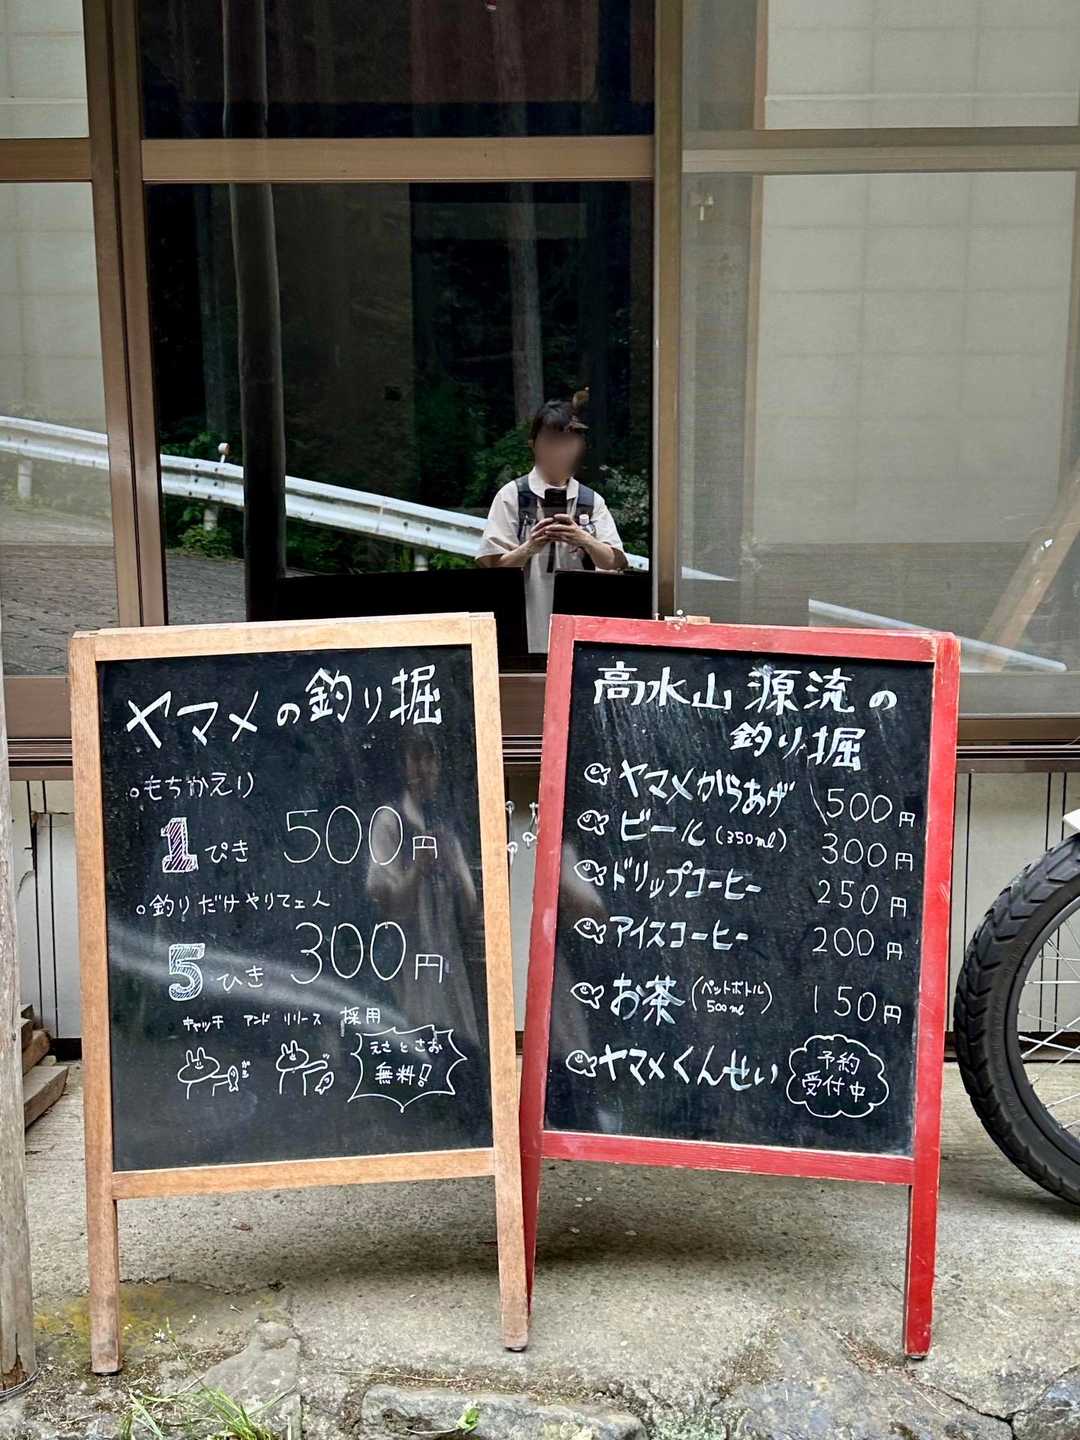 ヤマメの釣り掘
○もちかえり
1ぴき 500円
○釣りだけやりてェ人
5ひき 300円
キャッチ アンド リリース 採用
えさとさお
無料!
高水山源流の
釣り掘
ヤマメからあげ 500円
ビール(350ml) 300円
ドリップコーヒー 250円
アイスコーヒー 200円
お茶(ペットボトル 500ml) 150円
ヤマメくんせい 予約
受付中